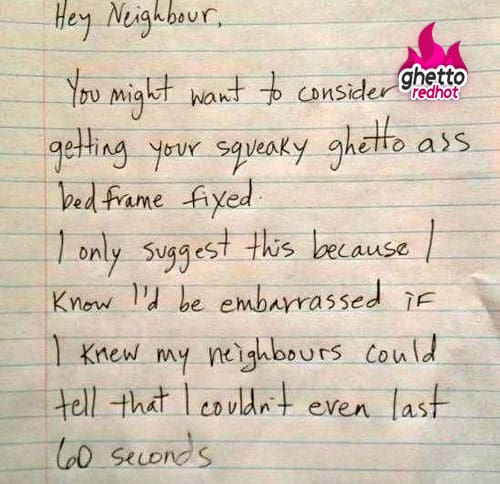 Hey Neighbour,
You might want to consider
getting your squeaky ghetto ass
bedframe fixed.
I only suggest this because I
know I'd be embarrassed if
I knew my neighbours could
tell that I couldn't even last
60 seconds
ghetto
redhot